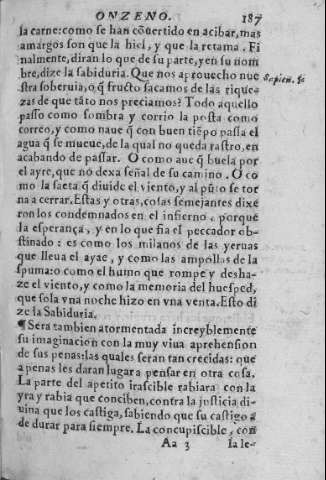 ONZENO. 187
la carne: como se han cõuertido en acibar, mas
amargos son que la hiel, y que la retama. Fi
nalmente, diran lo que de su parte, y en su nom
bre, dize la sabiduria. Que nos aprouecho nue
stra soberuia, o q̃ fructo sacamos de las rique
zas de que tãto nos preciamos? Todo aquello
passo como sombra y corrio la posta como
correo, y como naue q̃ con buen tiẽpo passa el
agua q̃ se mueue, de la qual no queda rastro, en
acabando de passar. O como aue q̃ buela por
el ayre, que no dexa señal de su camino. O co
mo la saeta q̃ diuide el viento, y al pũto se tor
na a cerrar. Estas y otras, cosas semejantes dixe
ron los condemnados en el infierno, porque
la esperança, y en lo que fia el peccador ob-
stinado: es como los milanos de las yeruas
que lleua el ayae, y como las ampollas de la
spuma: o como el humo que rompe y desha-
ze el viento, y como la memoria del huesped,
que sola vna noche hizo en vna venta. Esto di
ze la Sabiduria.
¶ Sera tambien atormentada increyblemente
su imaginacion con la muy viua aprehension
de sus penas: las quales seran tan crecidas: que
a penas les daran lugar a pensar en otra cosa.
La parte del apetito irascible rabiara con la
yra y rabia que conciben, contra la justicia di-
uina que los castiga, sabiendo que su castigo a
de durar para siempre. La concupiscible, con
Aa 3 la le-
Sapien. 5c